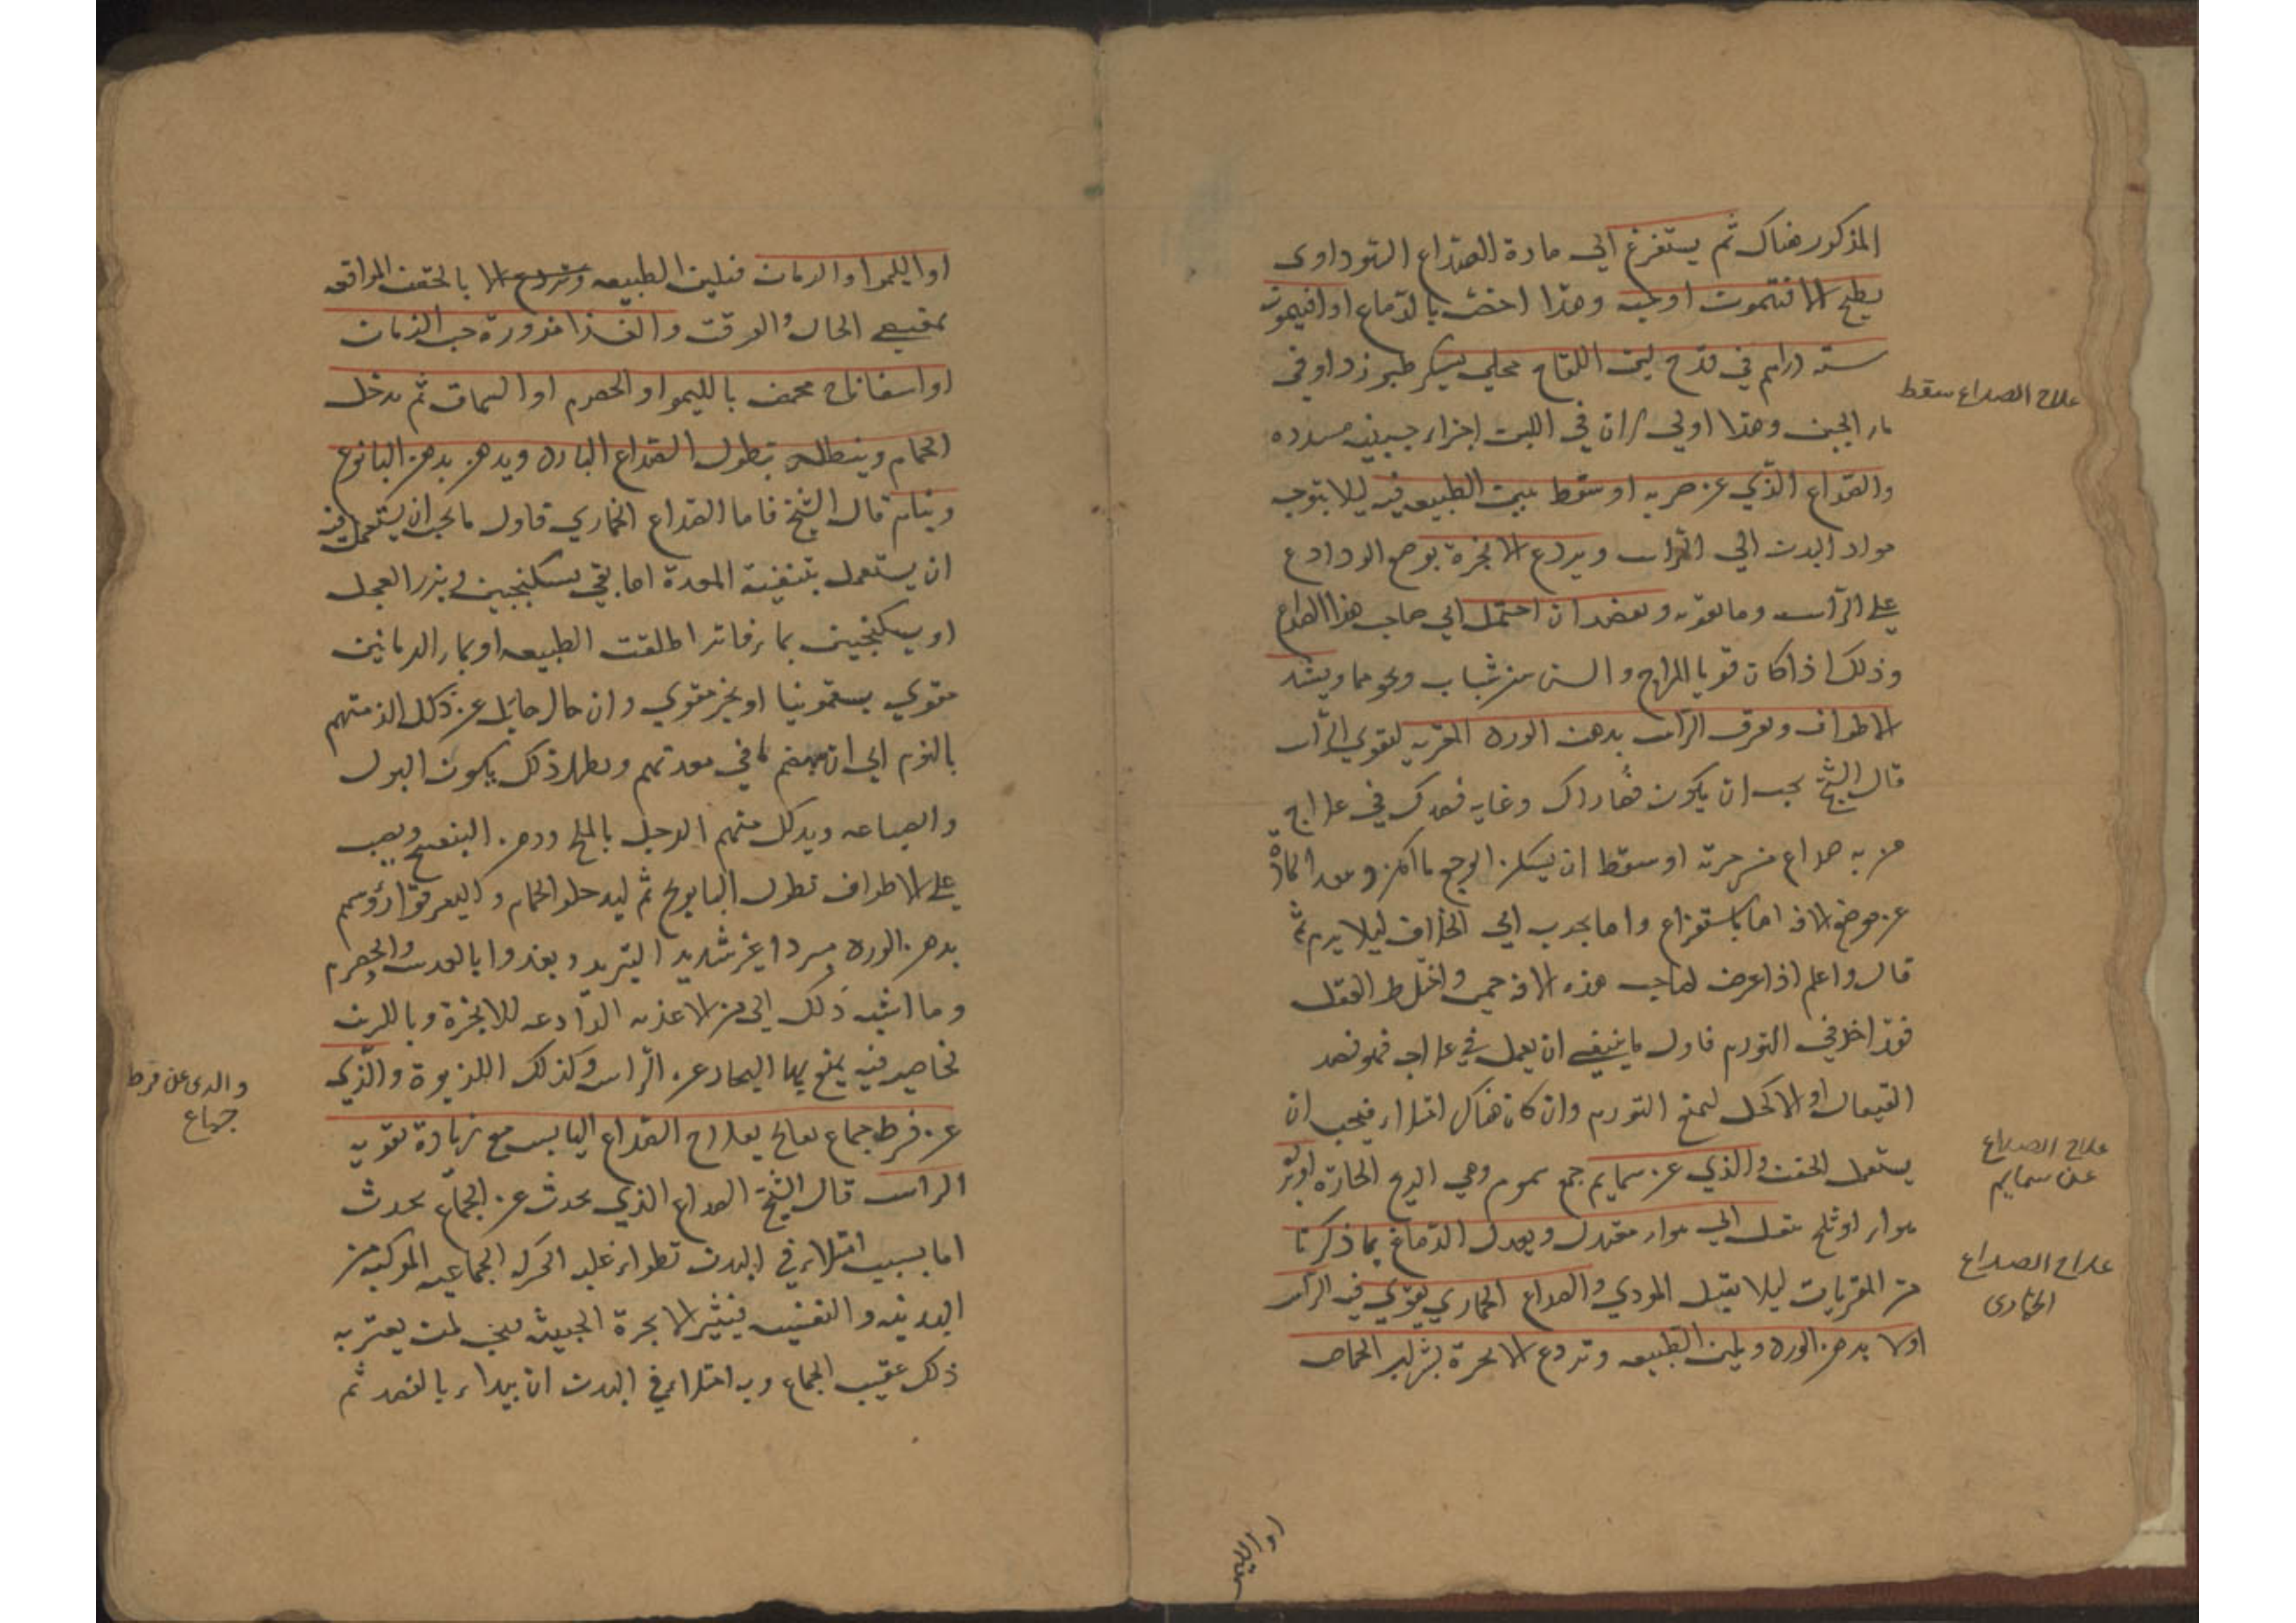 المذكور هناك ثم يستفرغ اي مادة الصداع السوداوى
بطبخ الافتيمون اوحبه وهذا اخص بالدماغ او افتيمون
ستة دراهم في قدح لبن اللقاح محلي بسكر طبرزد او في
ماء الجبن وهذا اولي لان في اللبن اجزاء جبنيه مسدده
علاج الصداع سقط
والصداع الذي عن ضربه او سقط يلين الطبيعه فيه ليلا يتوجه
مواد البدن الي الراس ويردع الابخرة بوضع الروادع
علي الراس وما يقويه ويفصد ان احتمل اي صاحب هذا الصداع
وذلك اذا كان قويا المزاج والسن من شباب ونحوهما ويشد
الاطراف ويعرق الراس بدهن الورد المقويه لتقوي الراس
قال الشيخ يجب ان يكون قصاراك وغايه قصدك في علاج
من به صداع من ضربة او سقط ان يسكن الوجع ما امكن وبعد المادة
عن موضع الافة اما باستفراغ واما بجذب الي الخلاف ليلا يرم ثم
قال واعلم اذا عرض لصاحب هذه الافة حمي واختلط العقل
فقد اخذ في التورم فاول ما ينبغي ان يعمل في علاجه فهو فصد
القيفال او الاكحل ليمنع التورم وان كان هناك امتلاء فيجب ان
علاج الصداع
عن سمايم
يستعمل الحقن والذي عن سمايم جمع سموم وهي الريح الحارة
هواء او ثلج ينقل الي هواء معتدل ويعدل الدماغ بما ذكرنا
علاج الصداع
الخمارى
من المقويات ليلا يقبل المودي والصداع الخماري يقوي فيه الراس
اولا بدهن الورد ويلين الطبيعه وتردع الابخرة بشراب الحماض
او الليمو
او الليموا والرمان فيلين الطبيعه وتردع الا بالحقن الموافقه
بمقتضي الحال والوقت والغذا مزورة حب الرمان
او اسفاناخ محمض بالليموا والحصرم او السماق ثم يدخل
الحمام وينطله بنطول الصداع البارد ويدهن بدهن البابونج
وينام قال الشيخ فاما الصداع الخماري فاول ما يجب ان يستعمل فيه
ان يستعمل بتنقية المعدة اما بقي بسكنجبين وبزر الفجل
او بسكنجبين بماء فاتر اطلقت الطبيعه او بماء الرمانين
مقوي بسقمونيا او بخر مقوي وان حال حايل عن ذلك الزمتهم
بالنوم الي ان ينهضم ما في معدتهم ويظهر ذلك بلون البول
وانصباغه ويدلك منهم الرجل بالملح ودهن البنفسج ويصب
علي الاطراف نطول البابونج ثم ليدخلوا الحمام وليعرقوا رؤسهم
بدهن الورد مبردا غير شديد التبريد ويغذوا بالعدس والحصرم
وما اشبه ذلك اي من الاغذيه الرادعه للابخرة وبالكرنب
لخاصية فيه يمنع بها البخار عن الراس وكذلك الكزبرة والذي
والدى عن فرط
جماع
عن فرط جماع يعالج بعلاج الصداع اليابس مع زيادة تقويه
الراس قال الشيخ الصداع الذي يحدث عن الجماع يحدث
اما بسبب امتلاء في البدن تطراء عليه الحركه الجماعيه المركبه من
البدنيه والنفسيه فيثير الابخرة الخبيثه لمن يعتريه
ذلك عقيب الجماع وبه امتلاء في البدن ان يبداء بالفصد ثم